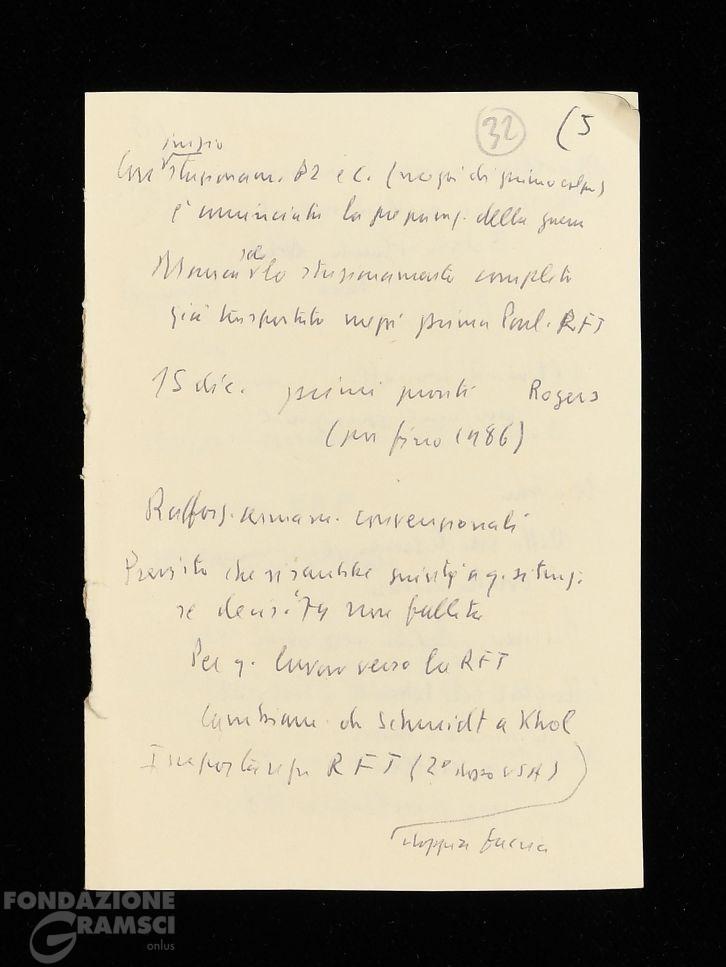 32 (5
inizio
Con stazionam. P2 e C. (mezzi di primo colpo)
è cominciata la preparaz. della guerra
Manca solo lo stazionamento completo
già trasportato mezzi prima Parl. RFT
15 dic. primi pronti Rogers
(poi fino 1986)
Rafforz. armam. convenzionali
Previsto che si sarebbe giunti a q. situaz.
se decis. '79 non fallita
Per q. lavoro verso la RFT
Cambiam. da Schmidt a Khol
Importanza RFT (2° dopo USA)
doppia faccia
FONDAZIONE
GRAMSCI
onlus